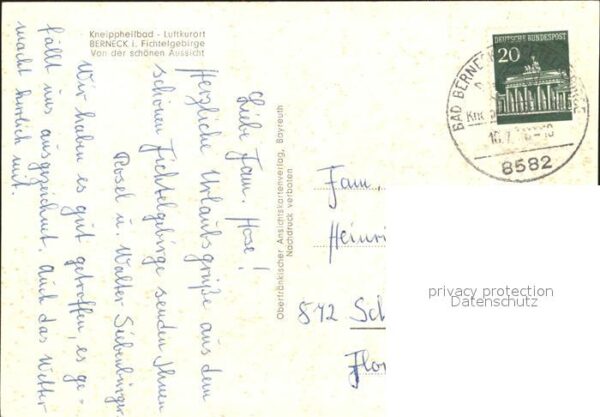 Kneippheilbad - Luftkurort
BERNECK i. Fichtelgebirge
Von der schönen Aussicht
Liebe Fam. Hose!
Herzliche Urlaubsgrüße aus dem
schönen Fichtelgebirge senden Ihnen
Rosel u. Walter Siebenbürger
Wir haben es gut getroffen, es ge=
fällt uns ausgezeichnet. Auch das Wetter
macht herrlich mit.
Oberfränkischer Ansichtskartenverlag, Bayreuth
Nachdruck verboten
DEUTSCHE BUNDESPOST
20
BAD BERNECK
8582
Fam.
Heinri
842 Sch
Flor
privacy protection
Datenschutz